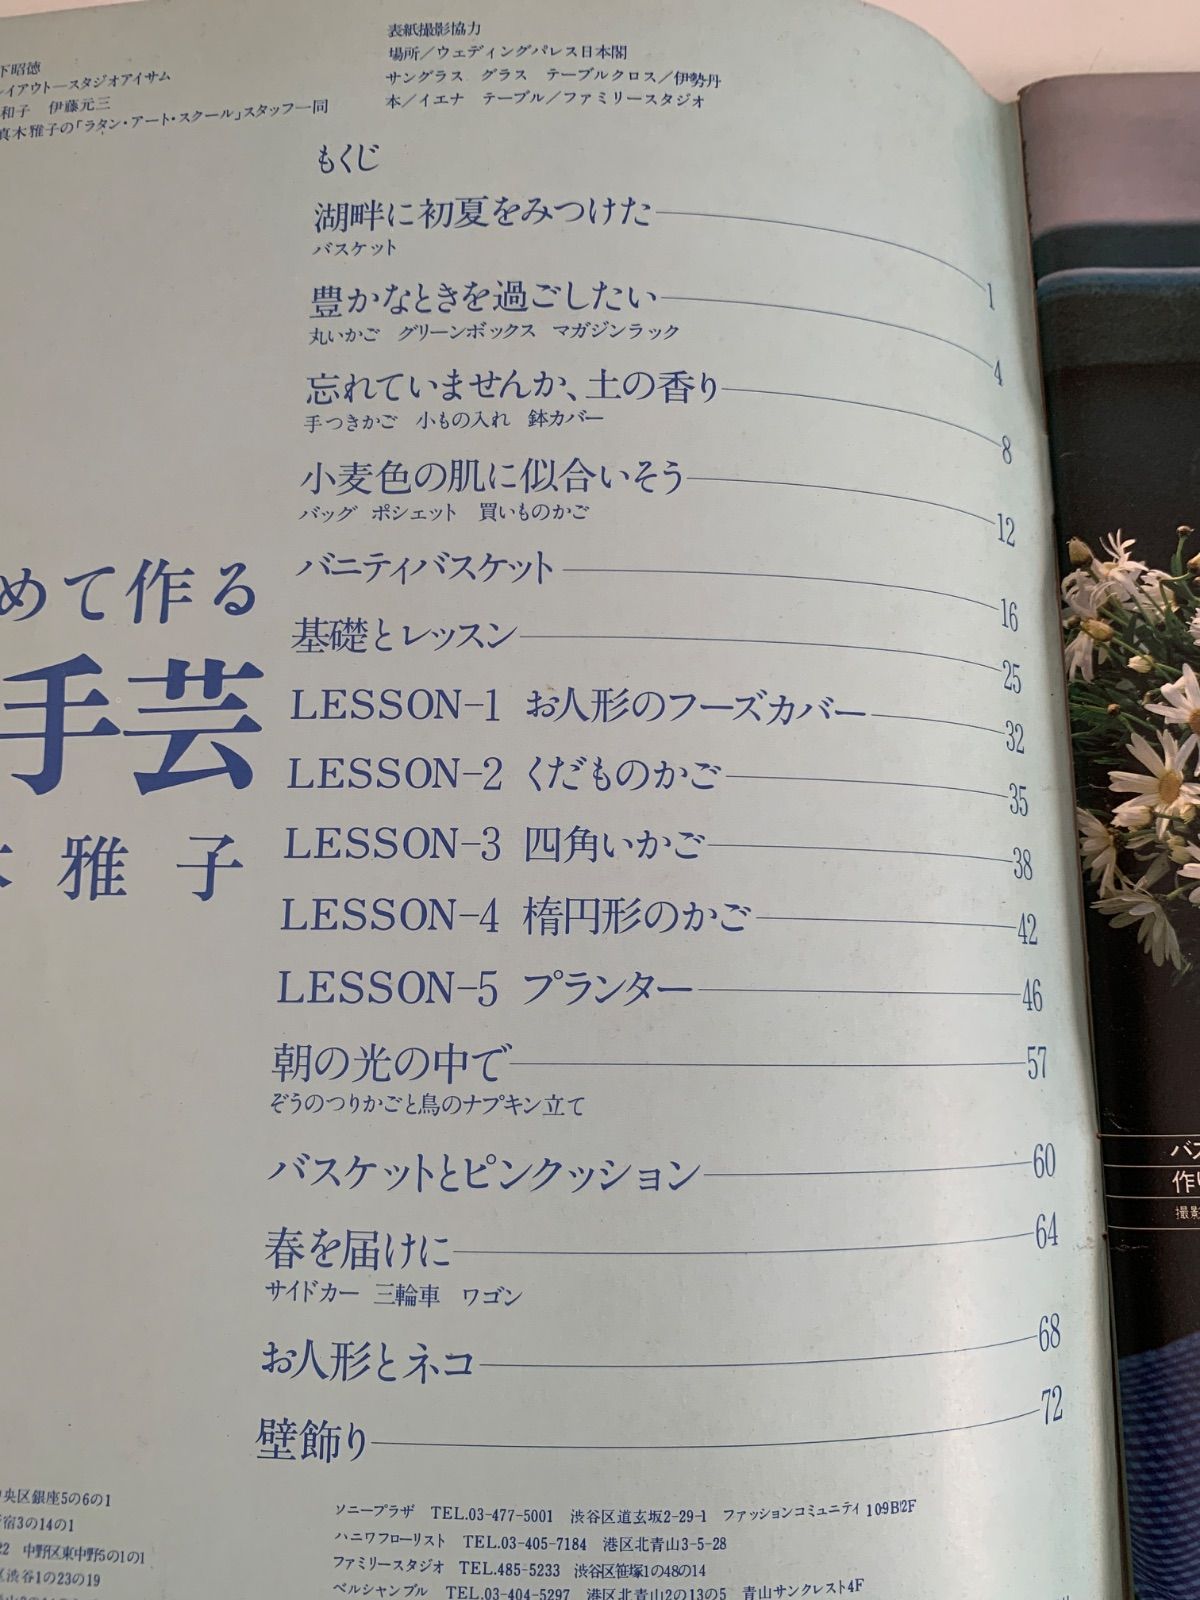 下昭徳
イアウトースタジオアイサム
和子　伊藤元三
真木雅子の「ラタン・アート・スクール」スタッフ一同
表紙撮影協力
場所／ウェディングパレス日本閣
サングラス　グラス　テーブルクロス／伊勢丹
本／イエナ　テーブル／ファミリースタジオ
めて作る
手芸
雅子
もくじ
湖畔に初夏をみつけた 1
バスケット
豊かなときを過ごしたい 4
丸いかご　グリーンボックス　マガジンラック
忘れていませんか、土の香り 8
手つきかご　小もの入れ　鉢カバー
小麦色の肌に似合いそう 12
バッグ　ポシェット　買いものかご
バニティバスケット 16
基礎とレッスン 25
LESSON-1 お人形のフーズカバー 32
LESSON-2 くだものかご 35
LESSON-3 四角いかご 38
LESSON-4 楕円形のかご 42
LESSON-5 プランター 46
朝の光の中で 57
ぞうのつりかごと鳥のナプキン立て
バスケットとピンクッション 60
春を届けに 64
サイドカー　三輪車　ワゴン
お人形とネコ 68
壁飾り 72
央区銀座5の6の1
宿3の14の1
22　中野区東中野5の1の1
区渋谷1の23の19
ソニープラザ　TEL.03-477-5001　渋谷区道玄坂2-29-1　ファッションコミュニティ109B2F
ハニワフローリスト　TEL.03-405-7184　港区北青山3-5-28
ファミリースタジオ　TEL.485-5233　渋谷区笹塚1の48の14
ベルシャンブル　TEL.03-404-5297　港区北青山2の13の5　青山サンクレスト4F
バス
作り
撮影